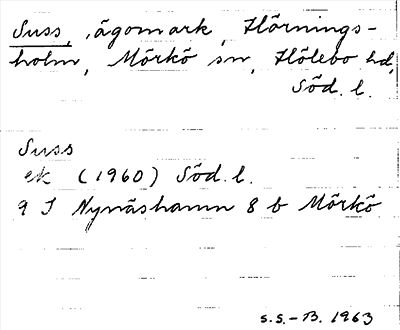 Suss, ägomark, Hörnings-
holm, Mörkö sn, Hölebo hd,
Söd. l.
Suss
ek (1960) Söd. l.
9 I Nynäshamn 8 b Mörkö
S.S.-B. 1963